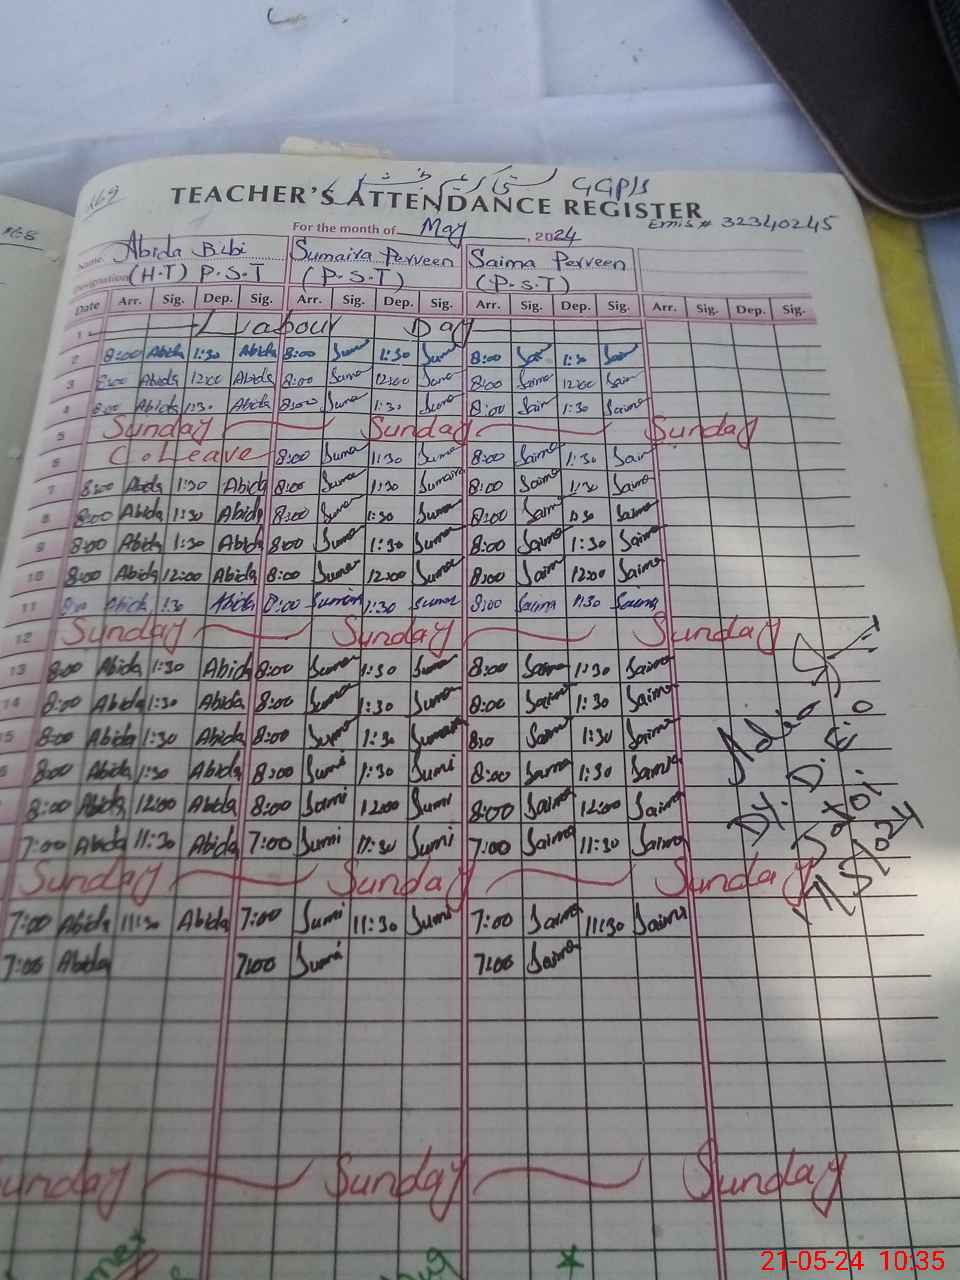 169
GGP/S
TEACHER'S ATTENDANCE REGISTER
For the month of May, 2024 Emis # 32340245
Name. Abida Bibi Sumaira Perveen Saima Perveen
Designation (H.T) P.S.T (P.S.T) (P.S.T)
Date Arr. Sig. Dep. Sig. Arr. Sig. Dep. Sig. Arr. Sig. Dep. Sig. Arr. Sig. Dep. Sig.
1 Labour Day
2 8:00 Abida 1:30 Abida 8:00 1:30 8:00 1:30
3 8:00 Abida 12:00 Abida 8:00 12:00 8:00 Saima 12:00
4 8:00 Abida 1:30 Abida 8:00 1:30 8:00 Saim 1:30 Saima
5 Sunday Sunday Sunday
6 C.Leave 8:00 Suma 1:30 Suma 8:00 Saima 1:30
7 8:00 Abida 1:30 Abida 8:00 Suma 1:30 Sumaira 8:00 Saima 1:30 Saima
8 8:00 Abida 1:30 Abida 8:00 Suma 1:30 Suma 8:00 Saim 1:30 Saima
9 8:00 Abida 1:30 Abida 8:00 Suma 1:30 Suma 8:00 Saima 1:30 Saima
10 8:00 Abida 12:00 Abida 8:00 Suma 12:00 Suma 8:00 Saim 12:00 Saima
11 8:00 Abida 1:30 Abida 8:00 1:30 8:00 Saima 1:30 Saima
12 Sunday Sunday Sunday
13 8:00 Abida 1:30 Abida 8:00 Suma 1:30 Suma 8:00 Saima 1:30 Saima
14 8:00 Abida 1:30 Abida 8:00 Suma 1:30 Suma 8:00 Saima 1:30 Saima
5 8:00 Abida 1:30 Abida 8:00 1:30 8:0 Saima 1:30 Saima
8:00 Abida 1:30 Abida 8:00 Sumi 1:30 Sumi 8:00 Saima 1:30 Saima
8:00 Abida 12:00 Abida 8:00 Sumi 12:00 Sumi 8:00 Saima 12:00 Saima
7:00 Abida 11:30 Abida 7:00 Sumi 11:30 Sumi 7:00 Saima 11:30 Saima
Sunday Sunday Sunday
7:00 Abida 11:30 Abida 7:00 Sumi 11:30 Sumi 7:00 Saima 11:30 Saima
7:00 Abida 7:00 Sumi 7:00 Saima
Dy. D.E.O
Sunday Sunday Sunday
21-05-24 10:35